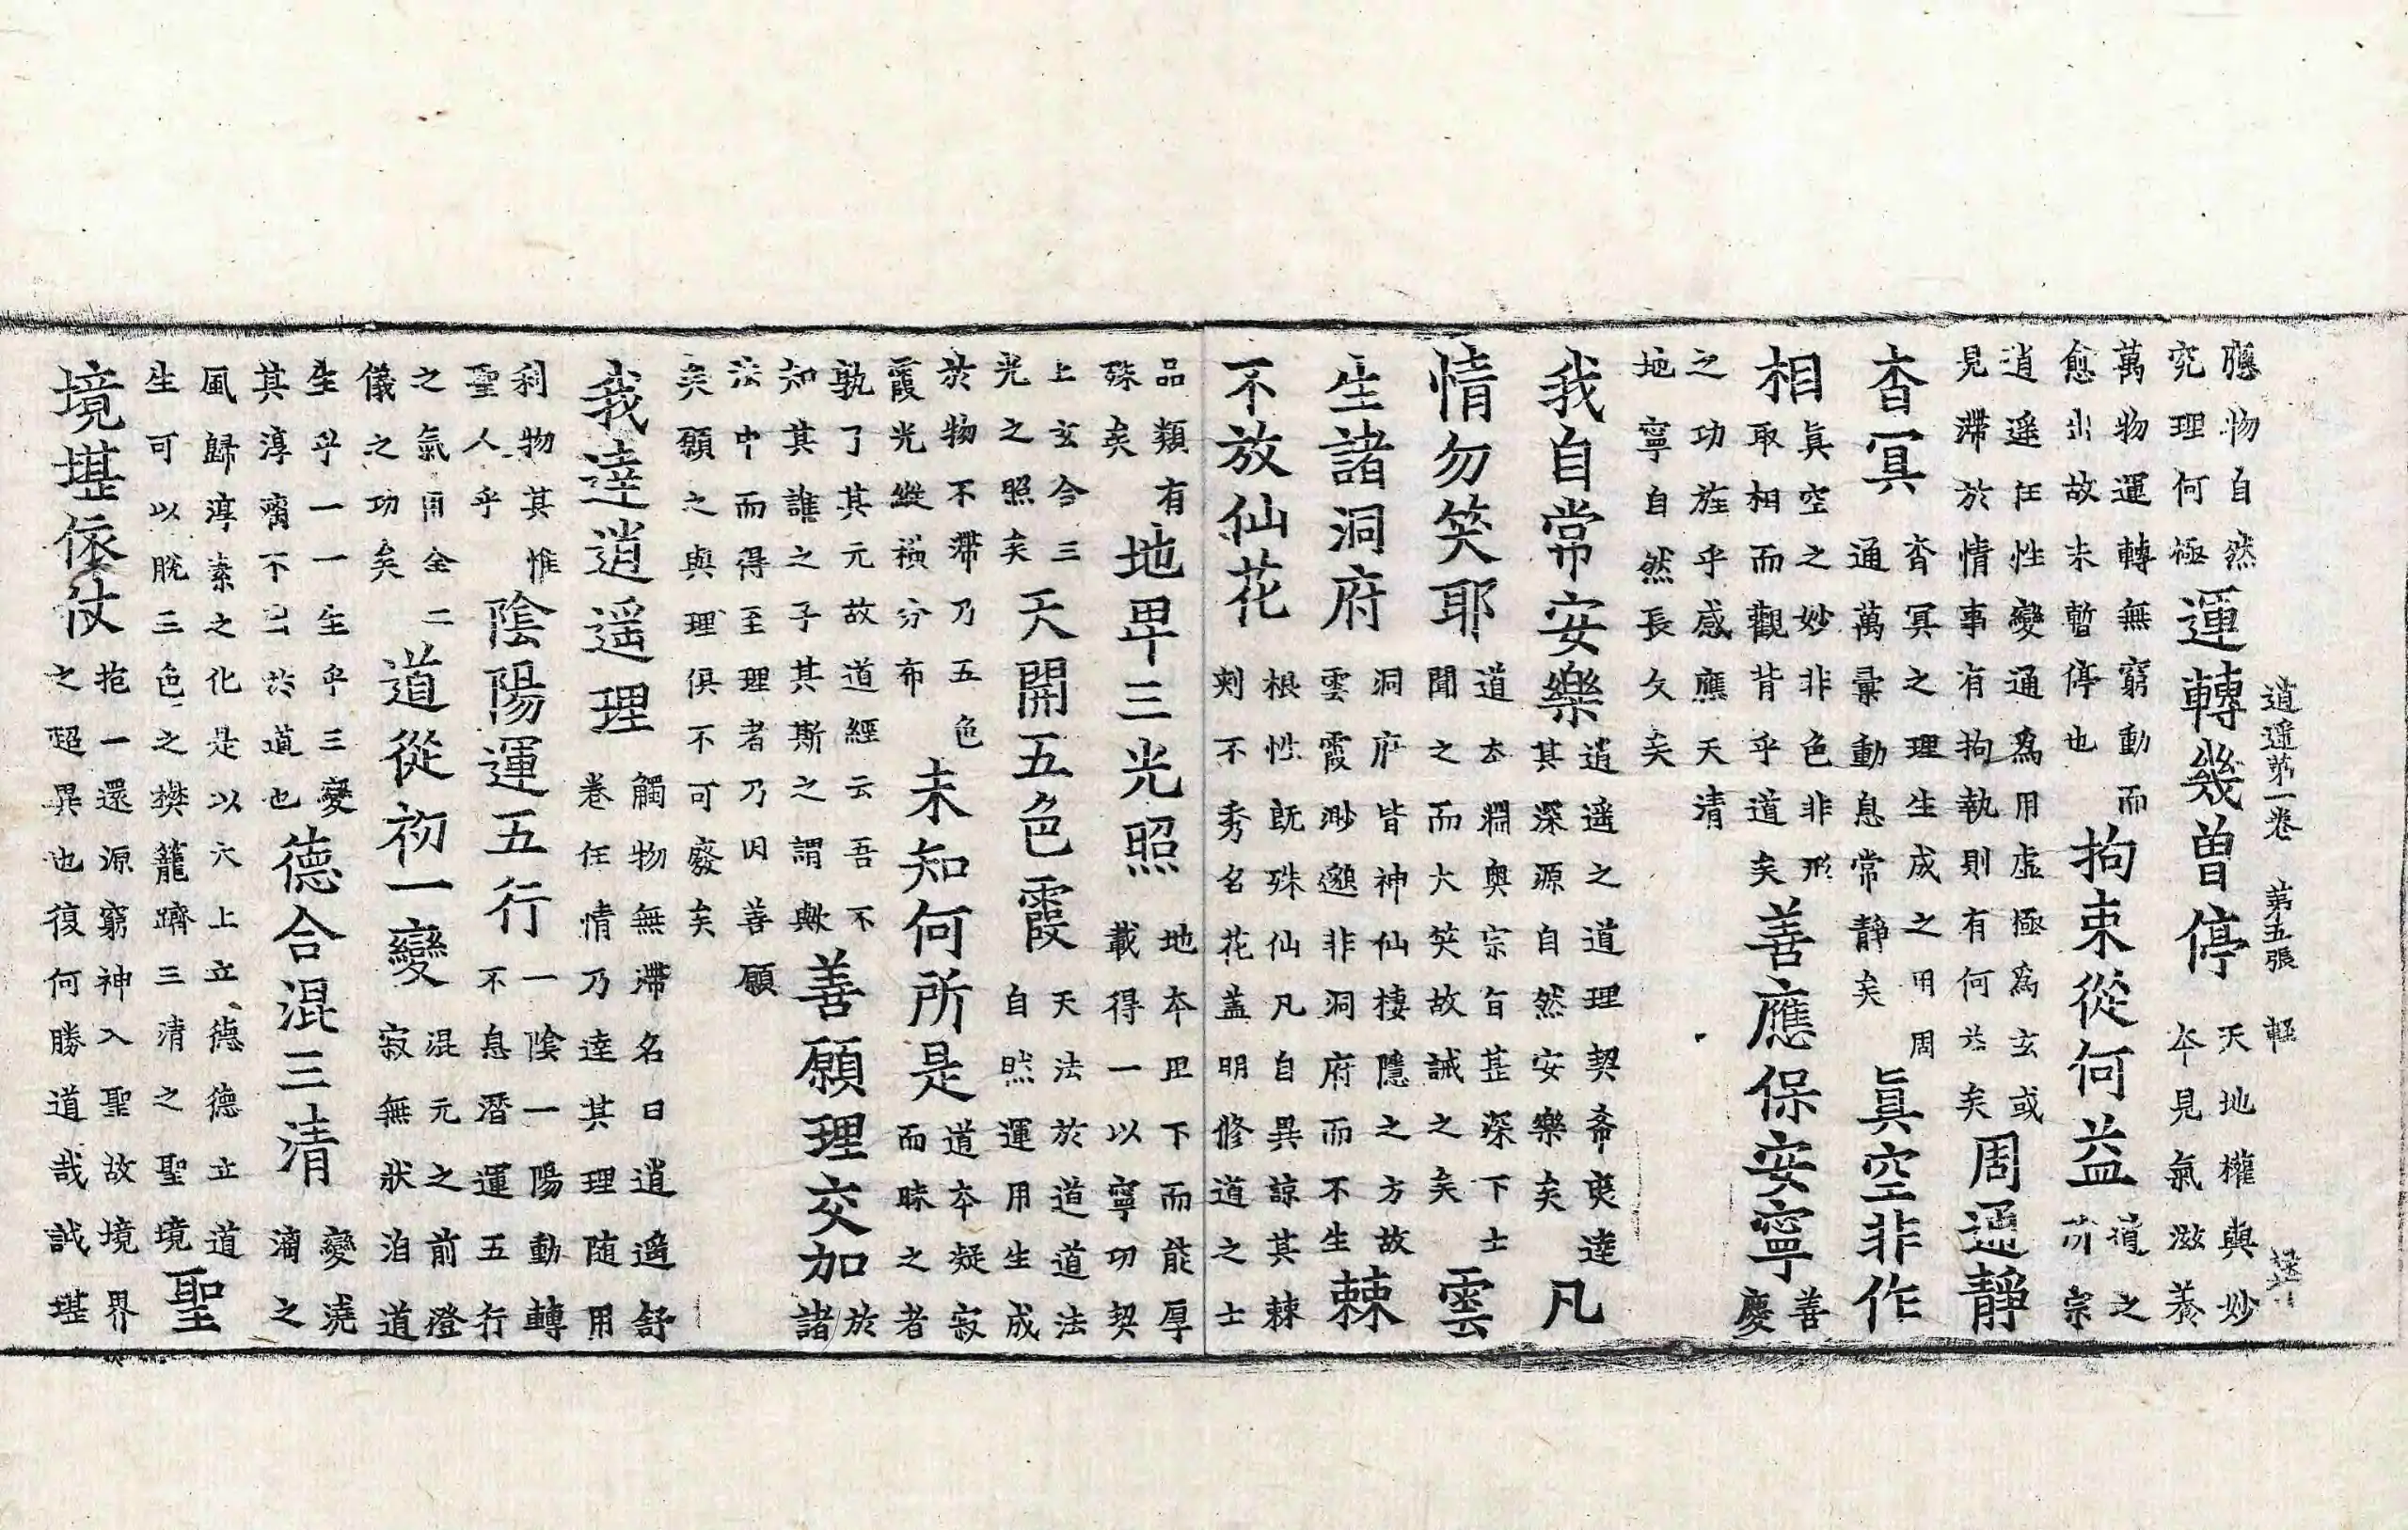 逍遥第一卷　第五張　輕
應物自然究理何極運轉幾曾停天地權輿妙本見氣滋養
萬物運轉無窮動而愈出故未暫停也拘束從何益道之所宗
逍遥任性變通爲用虛極爲玄或見滯於情事有拘執則有何益矣周通靜
杳冥杳冥之理生成之用周通萬彙動息常靜矣眞空非作
相眞空之妙非色非形取相而觀背乎道矣善應保安寧善慶
之功旌乎感應天清地寧自然長久矣
我自常安樂逍遥之道理契斋奭達其深源自然安樂矣凡
情勿笑耶道本淵奥宗旨甚深下士聞之而大笑故誡之矣雲
生諸洞府洞府皆神仙棲隱之方故雲霞渺邈非洞府而不生棘
不放仙花根性旣殊仙凡自異諒其棘刺不秀名花盖明修道之士
品類有殊矣地卑三光照地本卑下而能厚載得一以寧功契
上玄今三光之照矣天開五色霞天法於道道法自然運用生成
於物不滯乃五色霞光縱橫分布未知何所是道本凝寂而昧之者
孰了其元故道經云吾不知其誰之子其斯之謂歟善願理交加於諸
法中而得至理者乃因善願矣願之與理俱不可廢矣
我達逍遥理觸物無滯名曰逍遥舒卷任情乃達其理随用
利物其惟聖人乎陰陽運五行一陰一陽動轉不息潛運五行
之氣用全二儀之功矣道從初一變混元之前澄寂無狀洎道
生乎一一生乎三變其淳漓不已於道也德合混三清變澆漓之
風歸淳素之化是以太上立德德立道生可以脫三色之樊籠躋三清之聖境聖
境堪依仗抱一還源窮神入聖故境界之超異也復何勝道哉誠堪